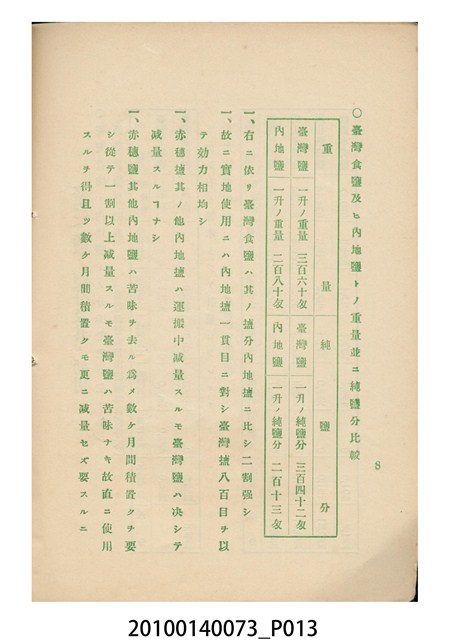 ○臺灣食鹽及ヒ內地鹽トノ重量並ニ純鹽分比較
重量 純鹽分
臺灣鹽 一升ノ重量 三百六十匁 臺灣鹽 一升ノ純鹽分 三百四十二匁
內地鹽 一升ノ重量 二百八十匁 內地鹽 一升ノ純鹽分 二百十三匁
一、右ニ依リ臺灣食鹽ハ其ノ鹽分內地鹽ニ比シ二割强シ
一、故ニ實地使用ニハ內地鹽一貫目ニ對シ臺灣鹽八百目ヲ以
テ効力相均シ
一、赤穗鹽其ノ他內地鹽ハ運搬中减量スルモ臺灣鹽ハ决シテ
减量スルヿナシ
一、赤穗鹽其他內地鹽ハ苦味ヲ去ル爲メ數ケ月間積置クヲ要
シ從テ一割以上减量スルモ臺灣鹽ハ苦味ナキ故直ニ使用
スルヲ得且ツ數ケ月間積置クモ更ニ减量セズ要スルニ
8
20100140073_P013